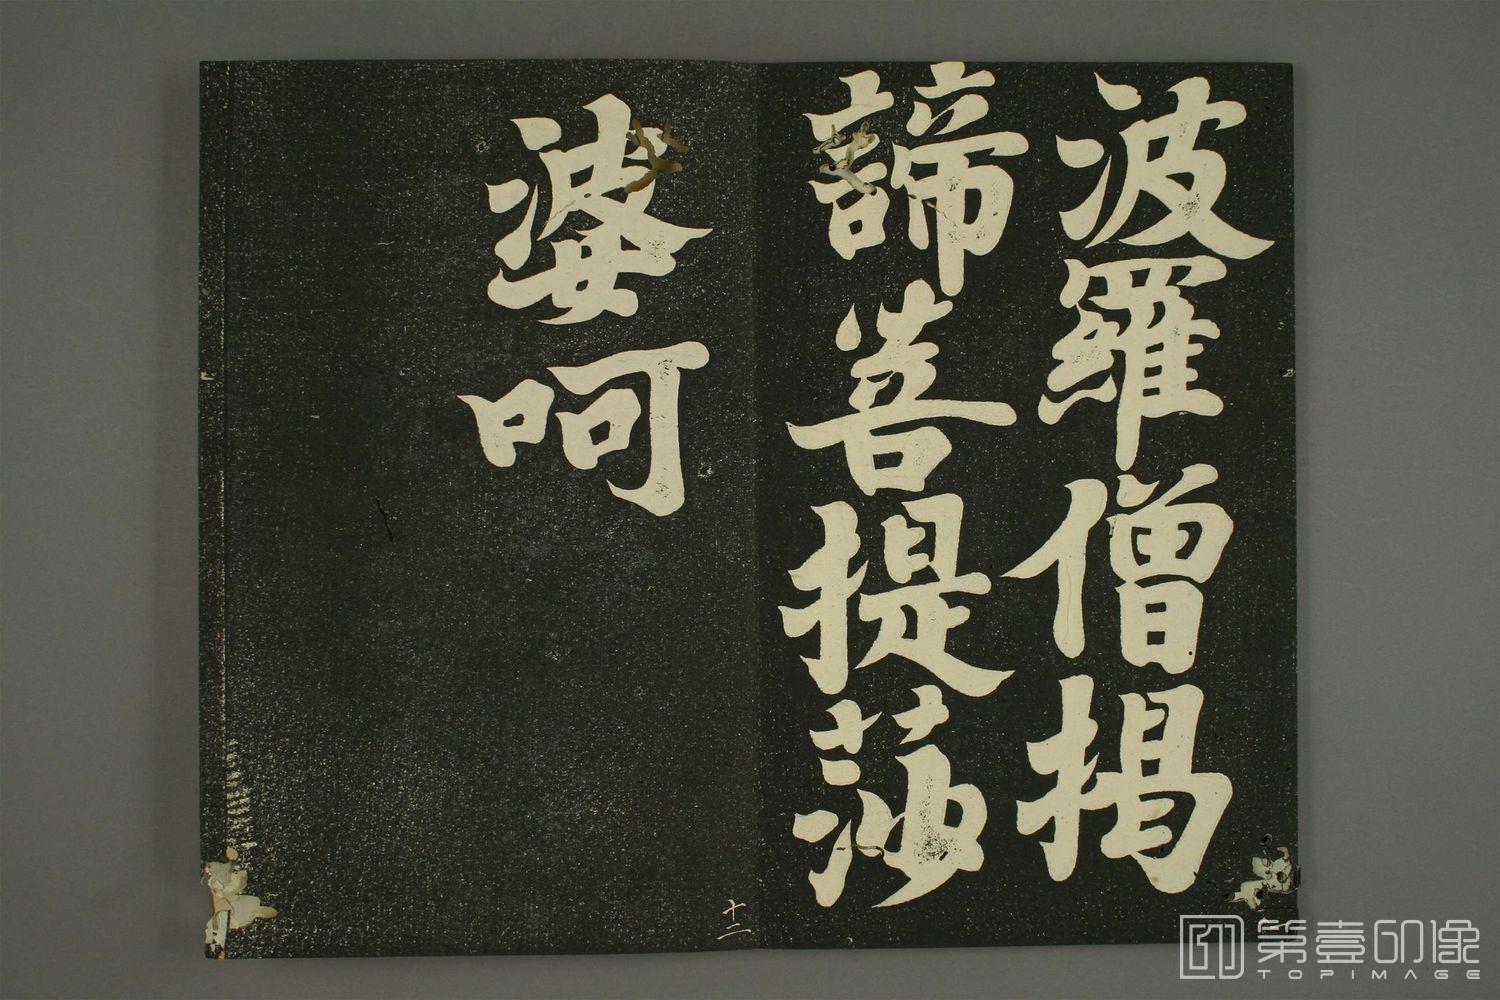 波羅僧揭
諦菩提莎
婆呵
十二
第壹印像
TOPIMAGE